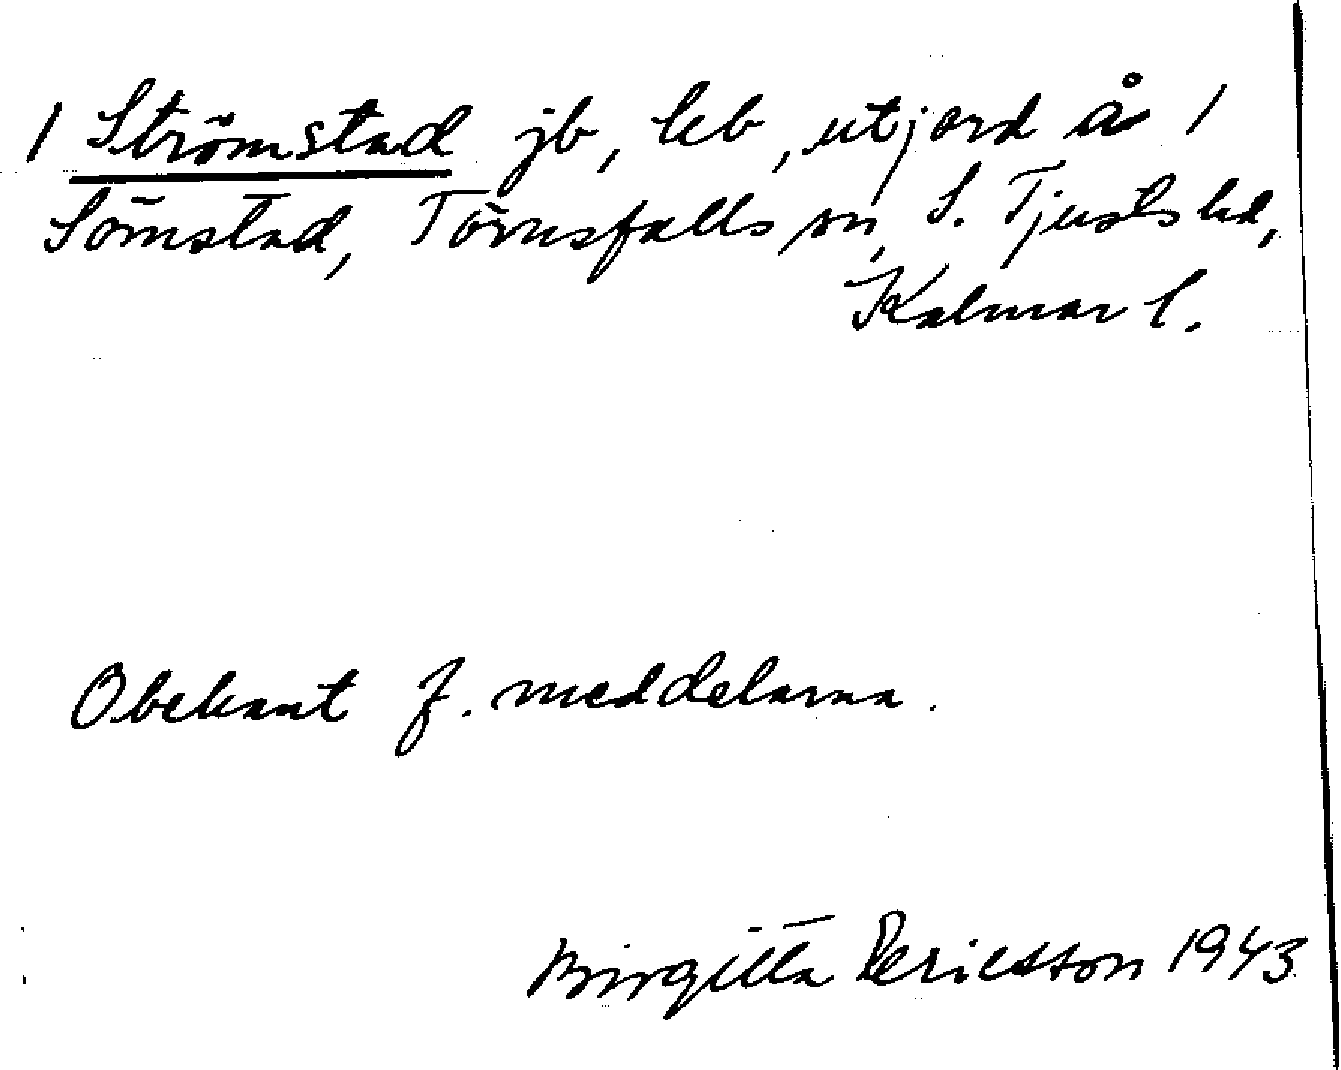 / Strömstad jb, kb, utjord å /
Sömstad, Törnsfalls sn, S. Tjusts hd,
Kalmar l.
Obekant f. meddelarna.
Birgitta Pericsson 1943